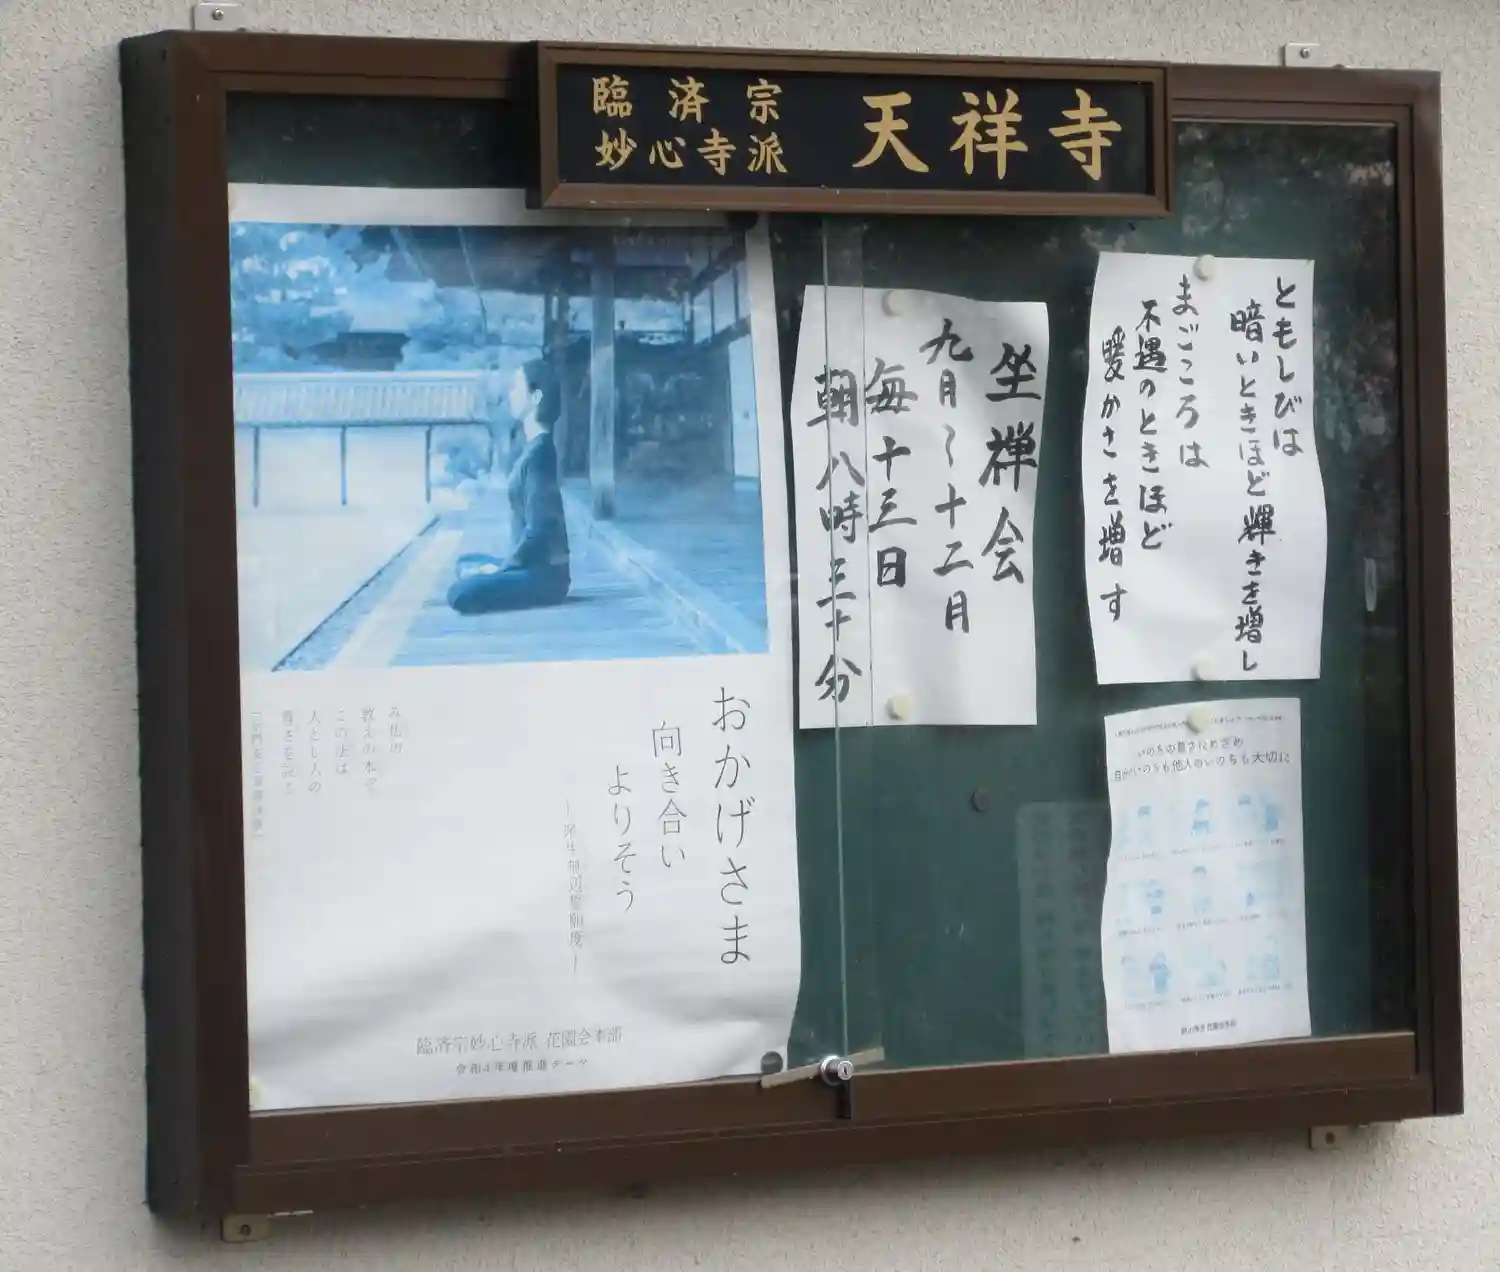 臨済宗
妙心寺派
天祥寺
ともしびは
暗いときほど輝きを増し
まごころは
不遇のときほど
暖かさを増す
坐禅会
九月〜十二月
毎十三日
朝八時三十分
おかげさま
向き合い
よりそう
み仏の
教えの本で
この世は
人とし人の
尊さを説く
臨済宗妙心寺派 花園会本部
令和4年度推進テーマ
いのちの尊さにめざめ
自分のいのちも他人のいのちも大切に